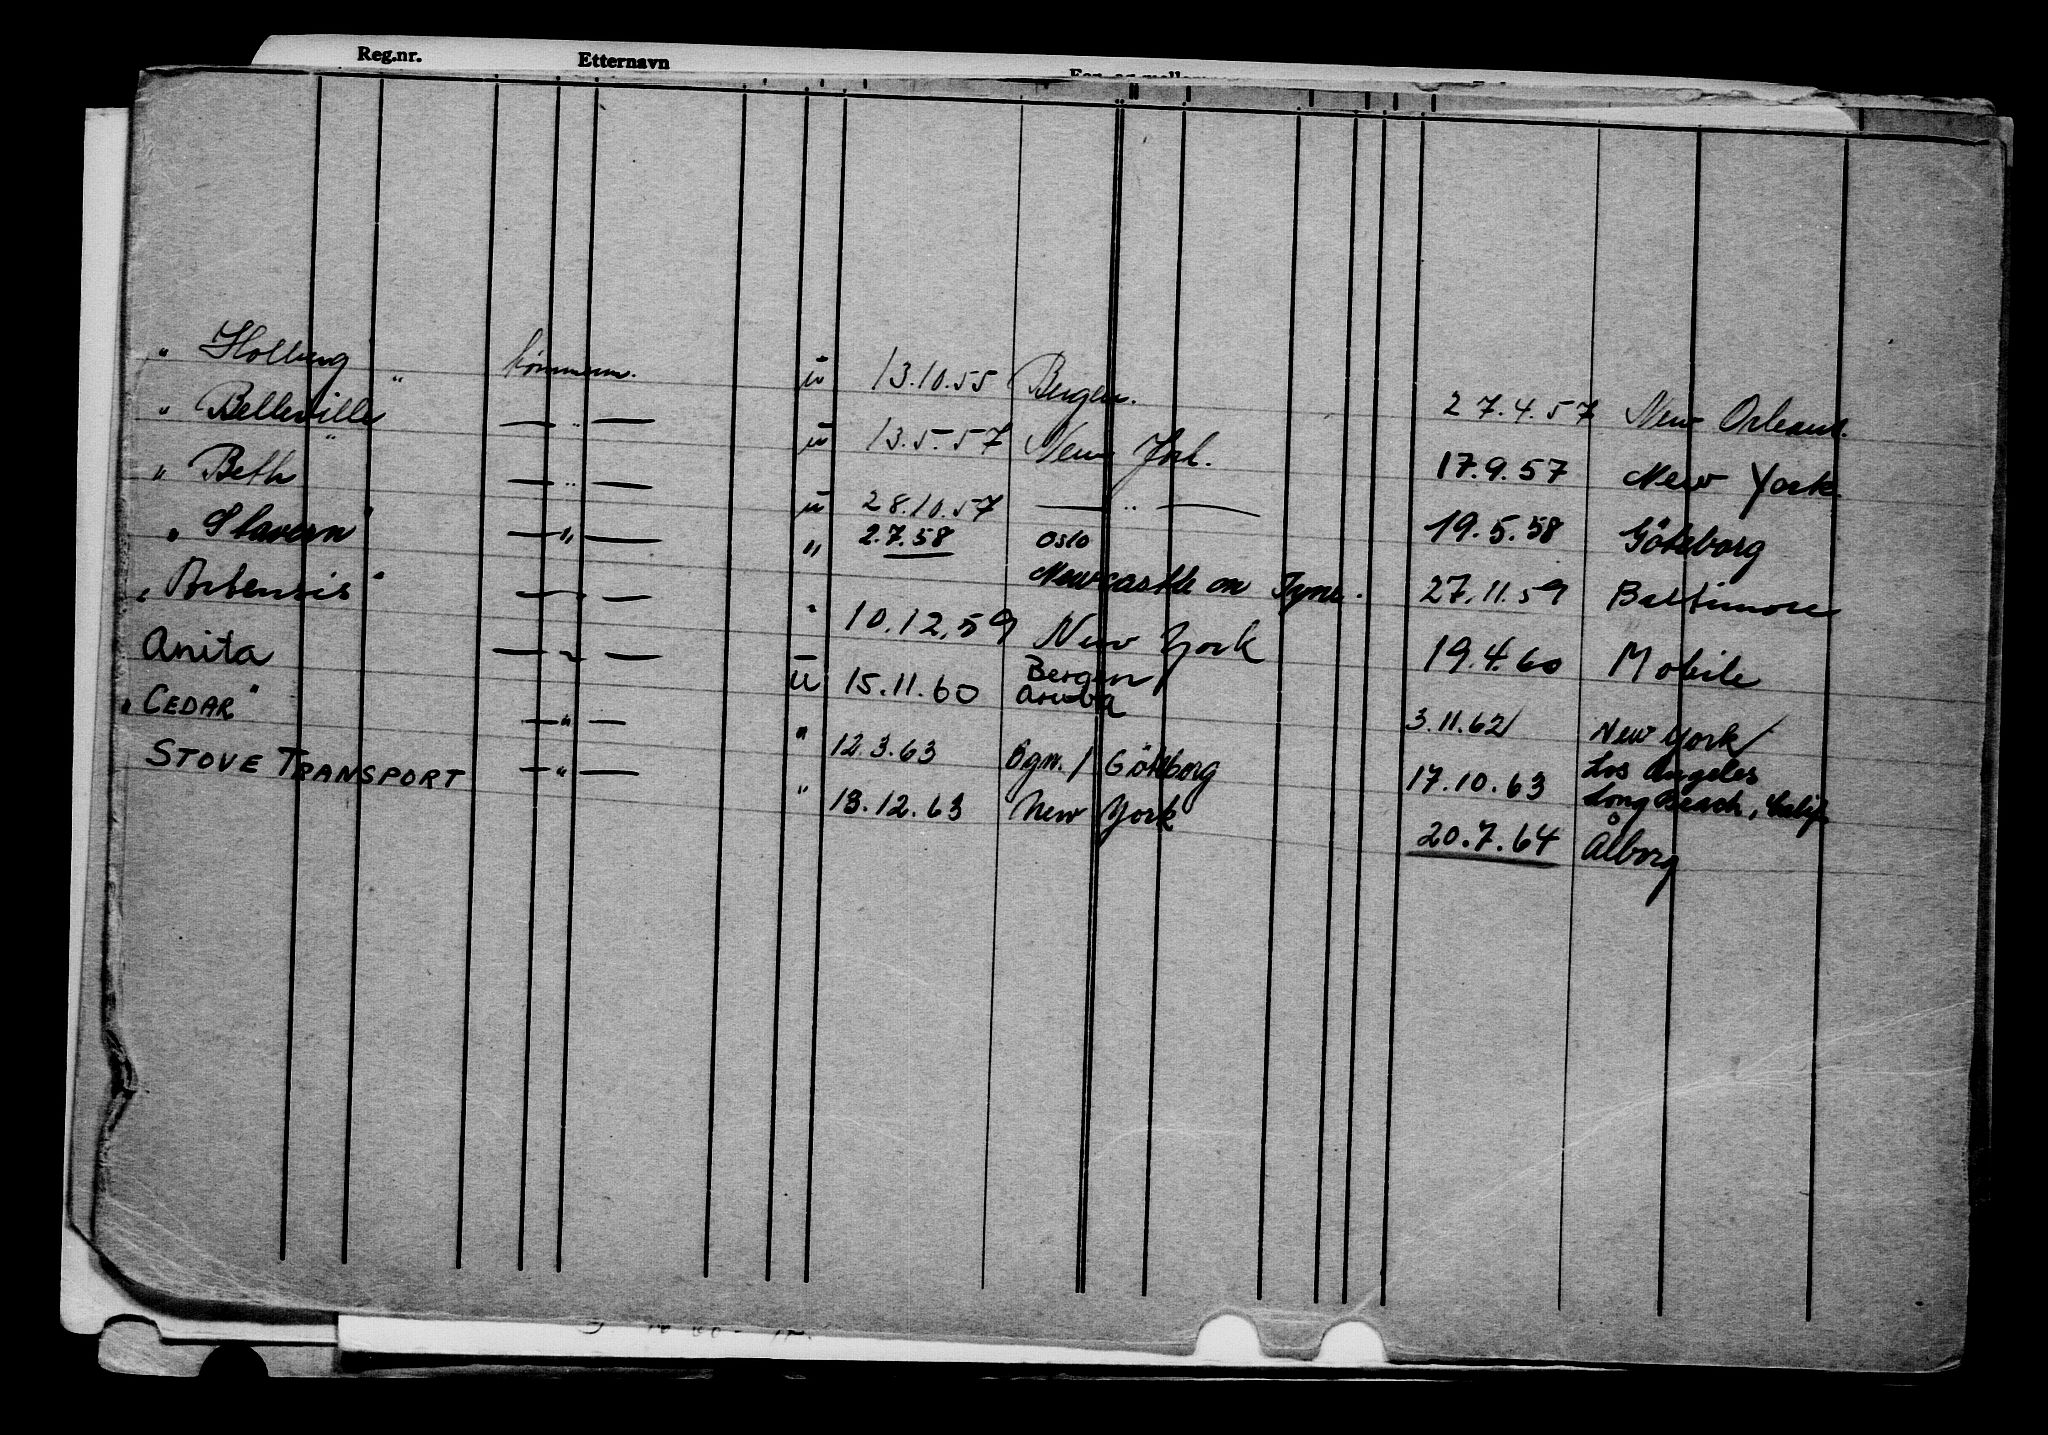 Reg.nr. Etternavn
„ Holberg " tømmerm. u 13.10.55 Bergen. 27.4.57 New Orleans.
„ Belleville " — „ — u 13.5.57 New York. 17.9.57 New York
„ Beth — „ — u 28.10.57 — „ — 19.5.58 Göteborg
„ Stavern" — „ — " 2.7.58 Oslo
Newcastle on Tyne. 27.11.59 Baltimore
„ Artensis" — „ — " 10.12.59 New York 19.4.60 Mobile
Anita — „ — u 15.11.60 Bergen/
Aruba 3.11.62 New York/
Los Angeles
„ CEDAR" — " — " 12.3.63 Bgn. / Göteborg 17.10.63 Long Beach, Calif.
STOVE TRANSPORT — " — " 13.12.63 New York 20.7.64 Ålborg